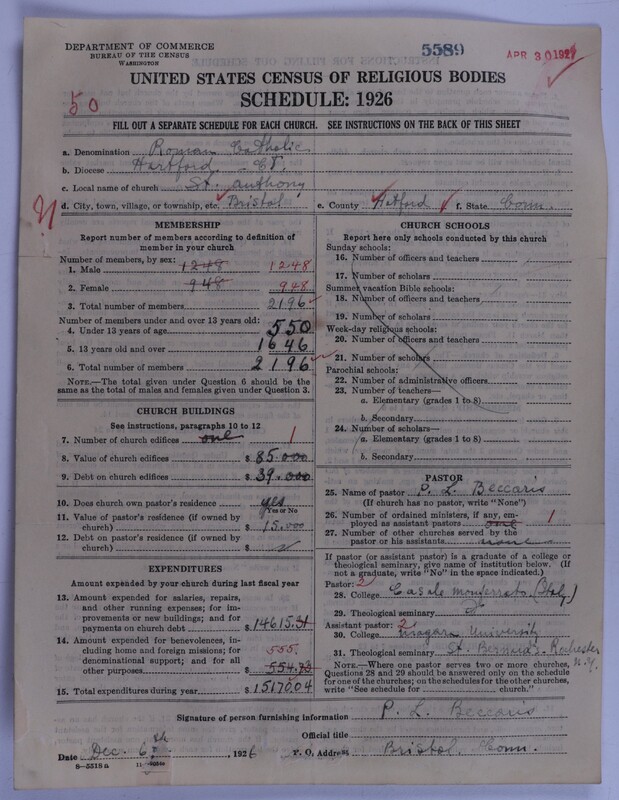 DEPARTMENT OF COMMERCE
BUREAU OF THE CENSUS
WASHINGTON
5589
APR 30 1927
UNITED STATES CENSUS OF RELIGIOUS BODIES
SCHEDULE: 1926
50
FILL OUT A SEPARATE SCHEDULE FOR EACH CHURCH. SEE INSTRUCTIONS ON THE BACK OF THIS SHEET
a. Denomination Roman Catholic
b. Diocese Hartford - CT.
c. Local name of church St. Anthony
d. City, town, village, or township, etc. Bristol e. County Hatford f. State Conn.
MEMBERSHIP
Report number of members according to definition of
member in your church
Number of members, by sex:
1. Male 1248 1248
2. Female 948 948
3. Total number of members 2196
Number of members under and over 13 years old:
4. Under 13 years of age 550
5. 13 years old and over 1646
6. Total number of members 2196
NOTE.—The total given under Question 6 should be
same as the total of males and females given under Question 3.
CHURCH BUILDINGS
See instructions, paragraphs 10 to 12
7. Number of church edifices one 1
8. Value of church edifices $ 85.000
9. Debt on church edifices $ 39.000
10. Does church own pastor's residence yes
Yes or No
11. Value of pastor's residence (if owned by
church) $ 15.000
12. Debt on pastor's residence (if owned by
church) $
EXPENDITURES
Amount expended by your church during last fiscal year
13. Amount expended for salaries, repairs,
and other running expenses; for im-
provements or new buildings; and for
payments on church debt $ 14615.31
14. Amount expended for benevolences, in-
cluding home and foreign missions; for
denominational support; and for all 555.
other purposes $ 554.73
15. Total expenditures during year $ 15170.04
CHURCH SCHOOLS
Report here only schools conducted by this church
Sunday schools:
16. Number of officers and teachers
17. Number of scholars
Summer vacation Bible schools:
18. Number of officers and teachers
19. Number of scholars
Week-day religious schools:
20. Number of officers and teachers
21. Number of scholars
Parochial schools:
22. Number of administrative officers
23. Number of teachers—
a. Elementary (grades 1 to 8)
b. Secondary
24. Number of scholars—
a. Elementary (grades 1 to 8)
b. Secondary
PASTOR
25. Name of pastor P. L. Beccaris
(If church has no pastor, write "None")
26. Number of ordained ministers, if any, em-
ployed as assistant pastors one 1
27. Number of other churches served by the
pastor or his assistants none
If pastor (or assistant pastor) is a graduate of a college or
theological seminary, give name of institution below. (If
not a graduate, write "No" in the space indicated.)
Pastor: 2
28. College Casale Monferrato (Italy)
29. Theological seminary
Assistant pastor: 2
30. College Niagara University
31. Theological seminary St. Bernard's Rochester
N.Y.
NOTE.—Where one pastor serves two or more churches,
Questions 28 and 29 should be answered only on the schedule
for one of the churches; on the schedules for the other churches,
write "See schedule for church."
Signature of person furnishing information P. L. Beccaris
Official title
Date Dec. 6th, 1926 P. O. Address Bristol, Conn.
8—5518a